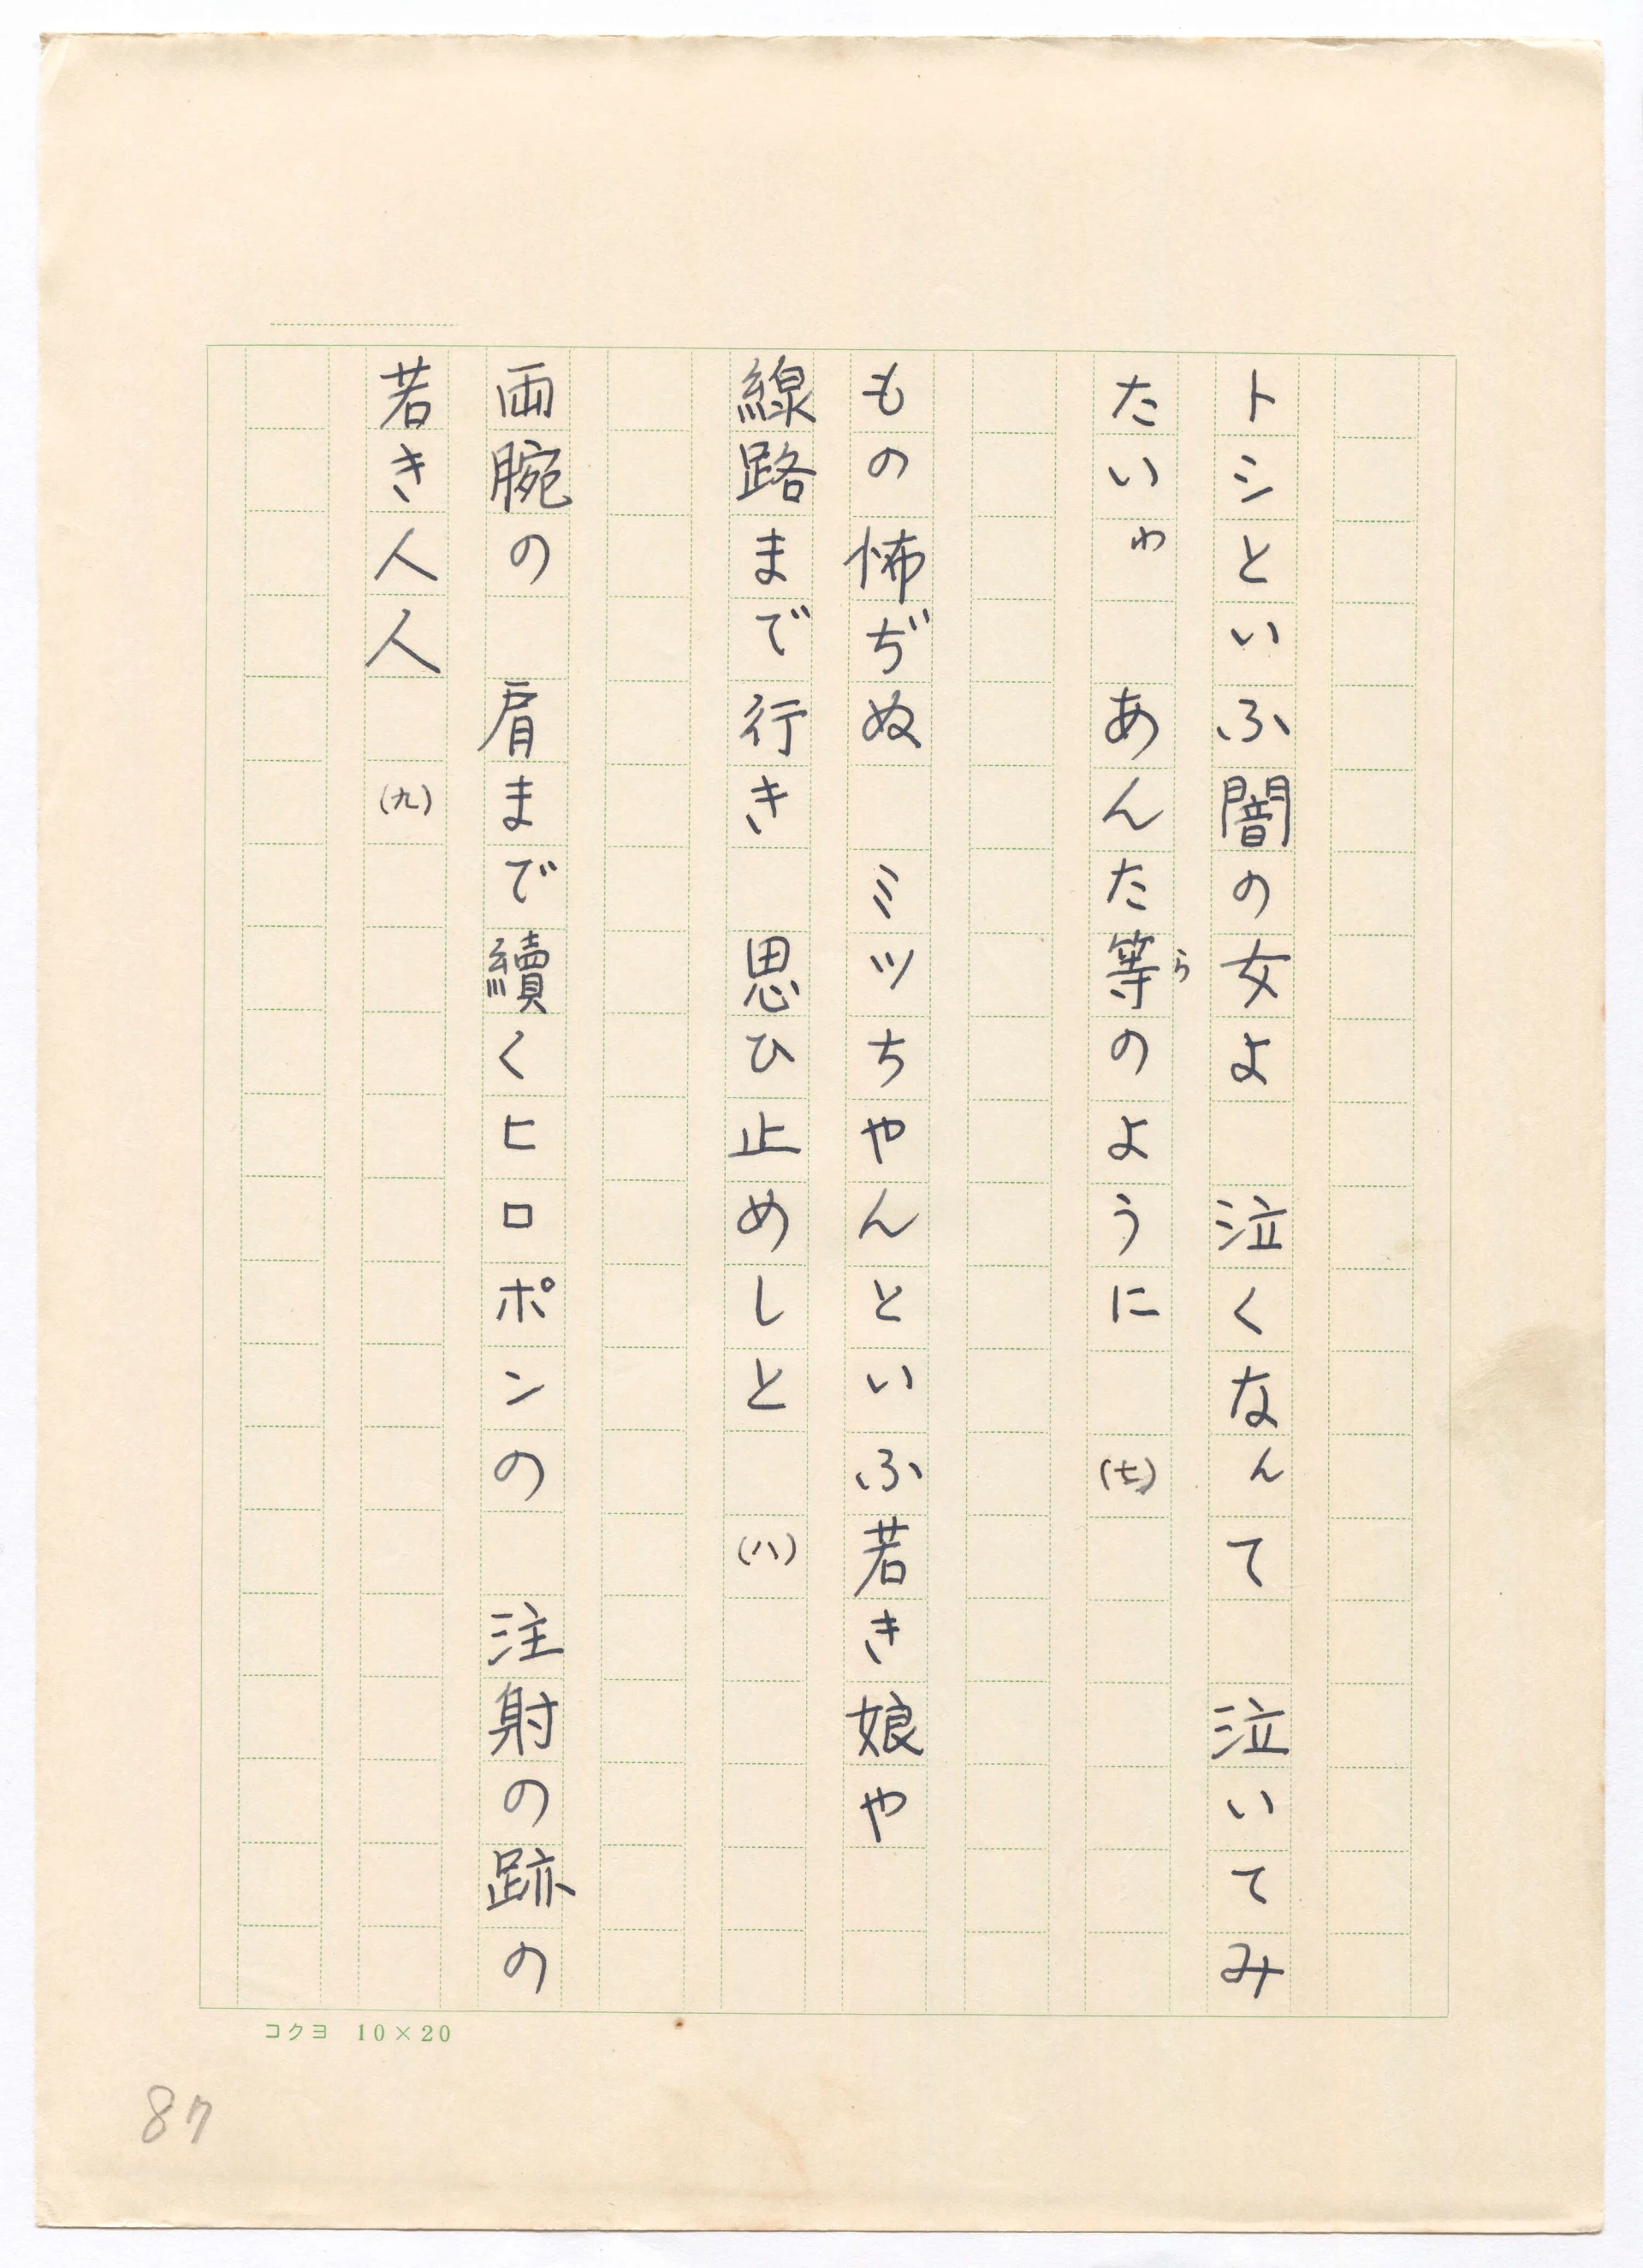 トシといふ闇の女よ　泣くなんて　泣いてみ
たいわ　あんた等のように　(七)
ら
もの怖ぢぬ　ミツちやんといふ若き娘や
線路まで行き　思ひ止めしと　(八)
両腕の　肩まで續くヒロポンの　注射の跡の
若き人人　(九)
コクヨ 10×20
87